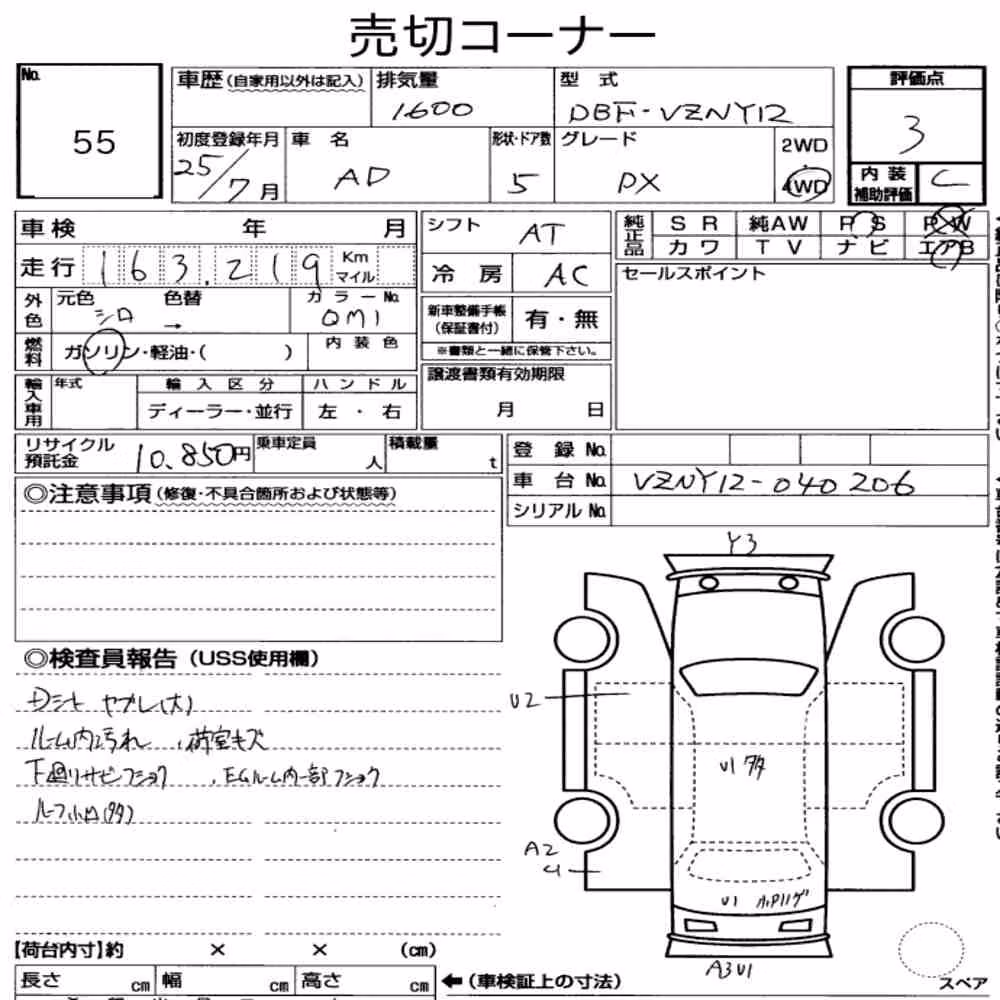 売切コーナー
No. 55
車歴(自家用以外は記入) 排気量 1600 型 式 DBF-VZNY12
初度登録年月 25/7月 車 名 AD 形状・ドア数 5 グレード DX 2WD 4WD
評価点 3
内装補助評価 C
車検 年 月
走行 163,219 Km マイル
外色 元色 シロ 色替 → カラーNo. QM1
燃料 ガソリン・軽油・( ) 内装色
輸入車用 年式 輸入区分 ディーラー・並行 ハンドル 左・右
シフト AT
冷房 AC
新車整備手帳(保証書付) 有・無
※書類と一緒に保管下さい。
譲渡書類有効期限 月 日
純正品 SR 純AW PS PW
カワ TV ナビ エアB
セールスポイント
リサイクル預託金 10,850円 乗車定員 人 積載量 t
登録No.
車台No. VZNY12-040206
シリアルNo.
◎注意事項(修復・不具合箇所および状態等)
◎検査員報告(USS使用欄)
Dシート ヤブレ(大)
ルーム内汚れ、荷室キズ
下廻りサビフショク、EGルーム内一部フショク
ルーフ小凹(多)
Y3
U2
U1 多
A2
U1
A3U1
【荷台内寸】約 × × (cm)
長さ cm 幅 cm 高さ cm
←(車検証上の寸法)
スペア